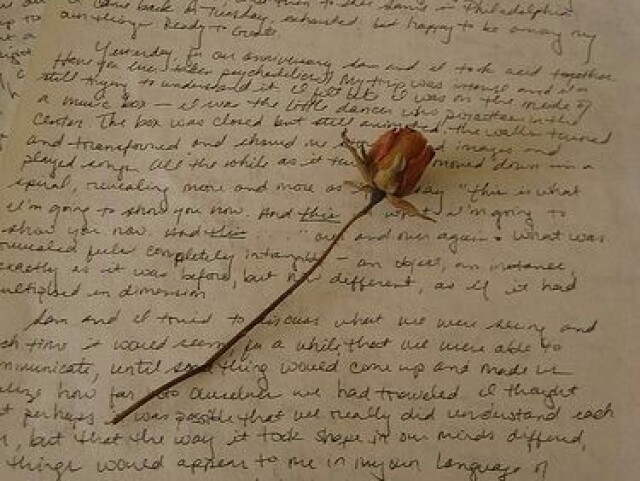 come back Tuesday, exhausted, but happy to be among my
our things. Ready to create.
Yesterday, for our anniversary, Sam and I took acid together.
Have you ever taken psychedelics? My trip was intense and I'm
still trying to understand it. I felt like I was on the inside of
a music box — I was the little dancer who pirouettes in the
center. The box was closed but still animated, the walls turned
and transformed and showed me images and
played songs. All the while as it moved down in a
spiral, revealing more and more as "this is what
I'm going to show you now. And this I'm going to
show you now. And this . . . . " over and over again. What was
revealed felt completely intangible — an object, an instance,
exactly as it was before, but now different, as if it had
multiplied in dimension
Sam and I tried to discuss what we were seeing and
each time it would seem, for a while, that we were able to
communicate, until something would come up and made us
realize how far into ourselves we had traveled. I thought
that perhaps it was possible that we really did understand each
, but that the way it took shape in our minds differed,
things would appear to me in my own language of